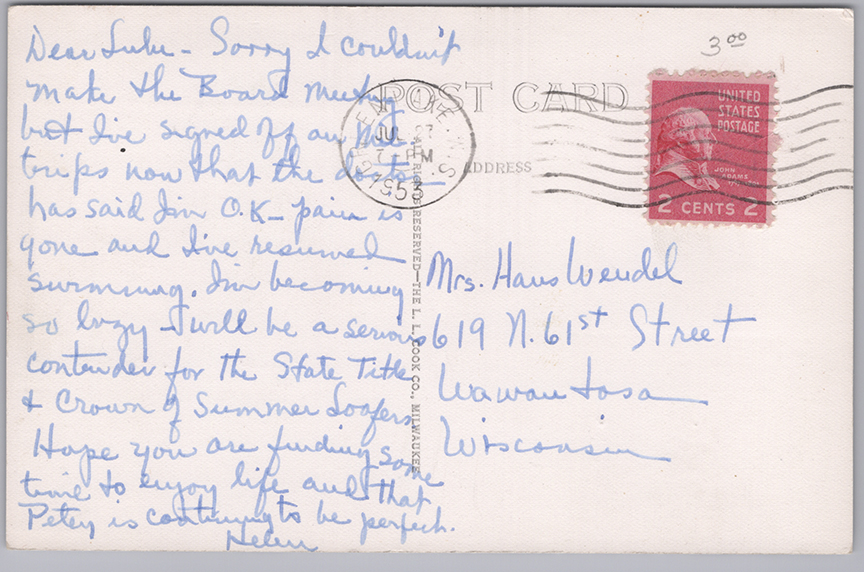 Dear Lulu - Sorry I couldn't
make the Board meeting
but I've signed off on
trips now that the doctor
has said I'm O.K. - pain is
gone and I've resumed
swimming. I'm becoming
so lazy I will be a serious
contender for the State Title
& Crown of Summer Loafers
Hope you are finding some
time to enjoy life and that
Petey is continuing to be perfect.
Helen
POST CARD
ADDRESS
GREEN LAKE, WIS.
JUL 27
7 PM
1955
ALL RIGHTS RESERVED—THE L. L. COOK CO., MILWAUKEE
3 00
UNITED
STATES
POSTAGE
JOHN
ADAMS
2 CENTS 2
Mrs. Hans Wendel
619 N. 61st Street
Wauwautosa
Wisconsin